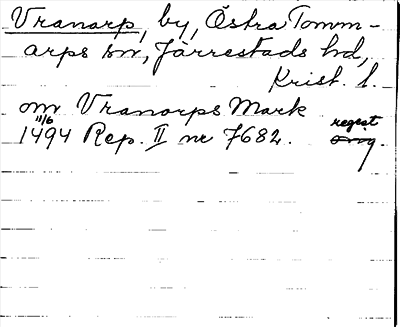 Vranarp, by, Östra Tomm-
arps sn, Järrestads hd,
Krist. l.
om Vranarps Mark
11/6 regist
1494 Rep. II nr 7682. orig.